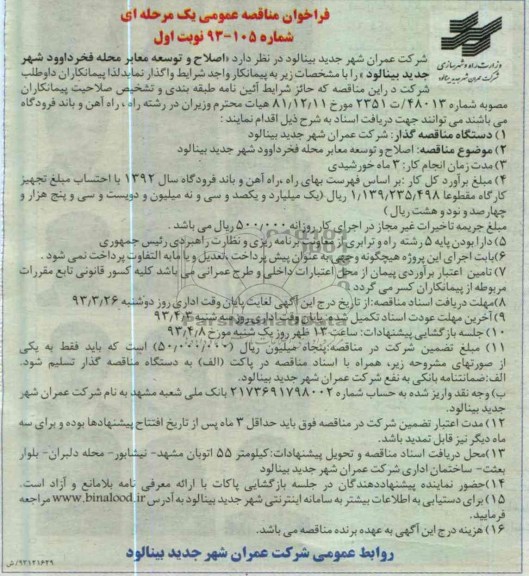 فراخوان مناقصه عمومی یک مرحله ای
شماره ۱۰۵-۹۳ نوبت اول
وزارت راه و شهرسازی
شرکت عمران شهر جدید بینالود
شرکت عمران شهر جدید بینالود در نظر دارد «اصلاح و توسعه معابر محله فخرداوود شهر
جدید بینالود» را با مشخصات زیر به پیمانکار واجد شرایط واگذار نماید لذا پیمانکاران داوطلب
شرکت در این مناقصه که حائز شرایط آئین نامه طبقه بندی و تشخیص صلاحیت پیمانکاران
مصوبه شماره ۴۸۰۱۳/ت ۲۳۵۱ مورخ ۸۱/۱۲/۱۱ هیات محترم وزیران در رشته راه ، راه آهن و باند فرودگاه
می باشند می توانند جهت دریافت اسناد به شرح ذیل اقدام نمایند :
۱) دستگاه مناقصه گذار: شرکت عمران شهر جدید بینالود
۲) موضوع مناقصه: اصلاح و توسعه معابر محله فخرداوود شهر جدید بینالود
۳) مدت زمان انجام کار: ۳ ماه خورشیدی
۴) مبلغ برآورد کل کار :بر اساس فهرست بهای راه ،راه آهن و باند فرودگاه سال ۱۳۹۲ با احتساب مبلغ تجهیز
کارگاه مقطوعا ۱/۱۳۹/۲۳۵/۴۹۸ ریال (یک میلیارد و یکصد و سی و نه میلیون و دویست و سی و پنج هزار و
چهارصد و نود و هشت ریال )
مبلغ جریمه تاخیرات غیر مجاز در اجرای کار روزانه ۵۰۰/۰۰۰ ریال می باشد .
۵) دارا بودن پایه ۵ رشته راه و ترابری از معاونت برنامه ریزی و نظارت راهبردی رئیس جمهوری
۶)بابت اجرای این پروژه هیچگونه وجهی به عنوان پیش پرداخت ،تعدیل و یا مابه التفاوت پرداخت نمی شود .
۷) تامین اعتبار برآوردی پیمان از محل اعتبارات داخلی و طرح عمرانی می باشد کلیه کسور قانونی تابع مقررات
مربوطه از پیمانکاران کسر می گردد
۸)مهلت دریافت اسناد مناقصه:از تاریخ درج این آگهی لغایت پایان وقت اداری روز دوشنبه ۹۳/۳/۲۶
۹) آخرین مهلت عودت اسناد تکمیل شده: پایان وقت اداری روز سه شنبه ۹۳/۴/۳
۱۰) جلسه بازگشایی پیشنهادات: ساعت ۱۳ ظهر روز یک شنبه مورخ ۹۳/۴/۸
۱۱) مبلغ تضمین شرکت در مناقصه:پنجاه میلیون ریال (۵۰/۰۰۰/۰۰۰) است که باید فقط به یکی
از صورتهای مشروحه زیر، همراه با اسناد مناقصه در پاکت (الف) به دستگاه مناقصه گذار تسلیم شود.
الف:ضمانتنامه بانکی به نفع شرکت عمران شهر جدید بینالود.
ب)وجه نقد واریز شده به حساب شماره ۲۱۷۳۶۹۱۷۹۸۰۰۲ بانک ملی شعبه مشهد به نام شرکت عمران شهر
جدید بینالود.
۱۲)مدت اعتبار تضمین شرکت در مناقصه فوق باید حداقل ۳ ماه پس از تاریخ افتتاح پیشنهادها بوده و برای سه
ماه دیگر نیز قابل تمدید باشد.
۱۳)محل دریافت اسناد مناقصه و تحویل پیشنهادات: کیلومتر ۵۵ اتوبان مشهد- نیشابور- محله دلبران- بلوار
بعثت- ساختمان اداری شرکت عمران شهر جدید بینالود
۱۴)حضور نماینده پیشنهاددهندگان در جلسه بازگشایی پاکات با ارائه معرفی نامه بلامانع و آزاد است.
۱۵)برای دستیابی به اطلاعات بیشتر به سامانه اینترنتی شهر جدید بینالود به آدرس www.binalood.ir مراجعه
فرمایید.
۱۶) هزینه درج این آگهی به عهده برنده مناقصه می باشد.
روابط عمومی شرکت عمران شهر جدید بینالود
۹۳۱۲۱۶۲۹/ش